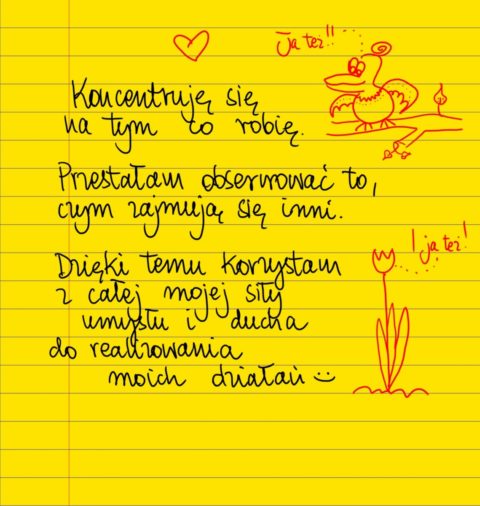 Ja też!!
Koncentruję się
na tym co robię.
Przestałam obserwować to,
czym zajmują się inni.
! ja też!
Dzięki temu korzystam
z całej mojej siły
umysłu i ducha
do realizowania
moich działań